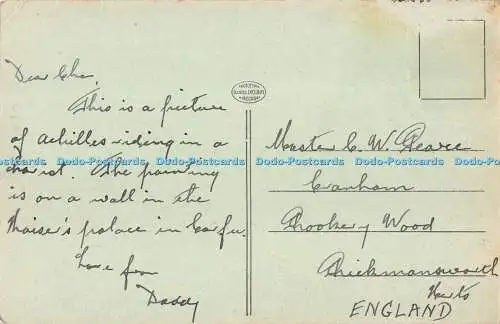 Dear Chas.
This is a picture
of Achilles riding in a
chariot. The painting
is on a wall in the
Kaiser's palace in Corfu.
Love from
Daddy
Master C. W. Pearce
Cranham
Rookery Wood
Rickmansworth
Herts
ENGLAND
Dodo-Postcards Dodo-Postcards Dodo-Postcards Dodo-Postcards Dodo-Postcards